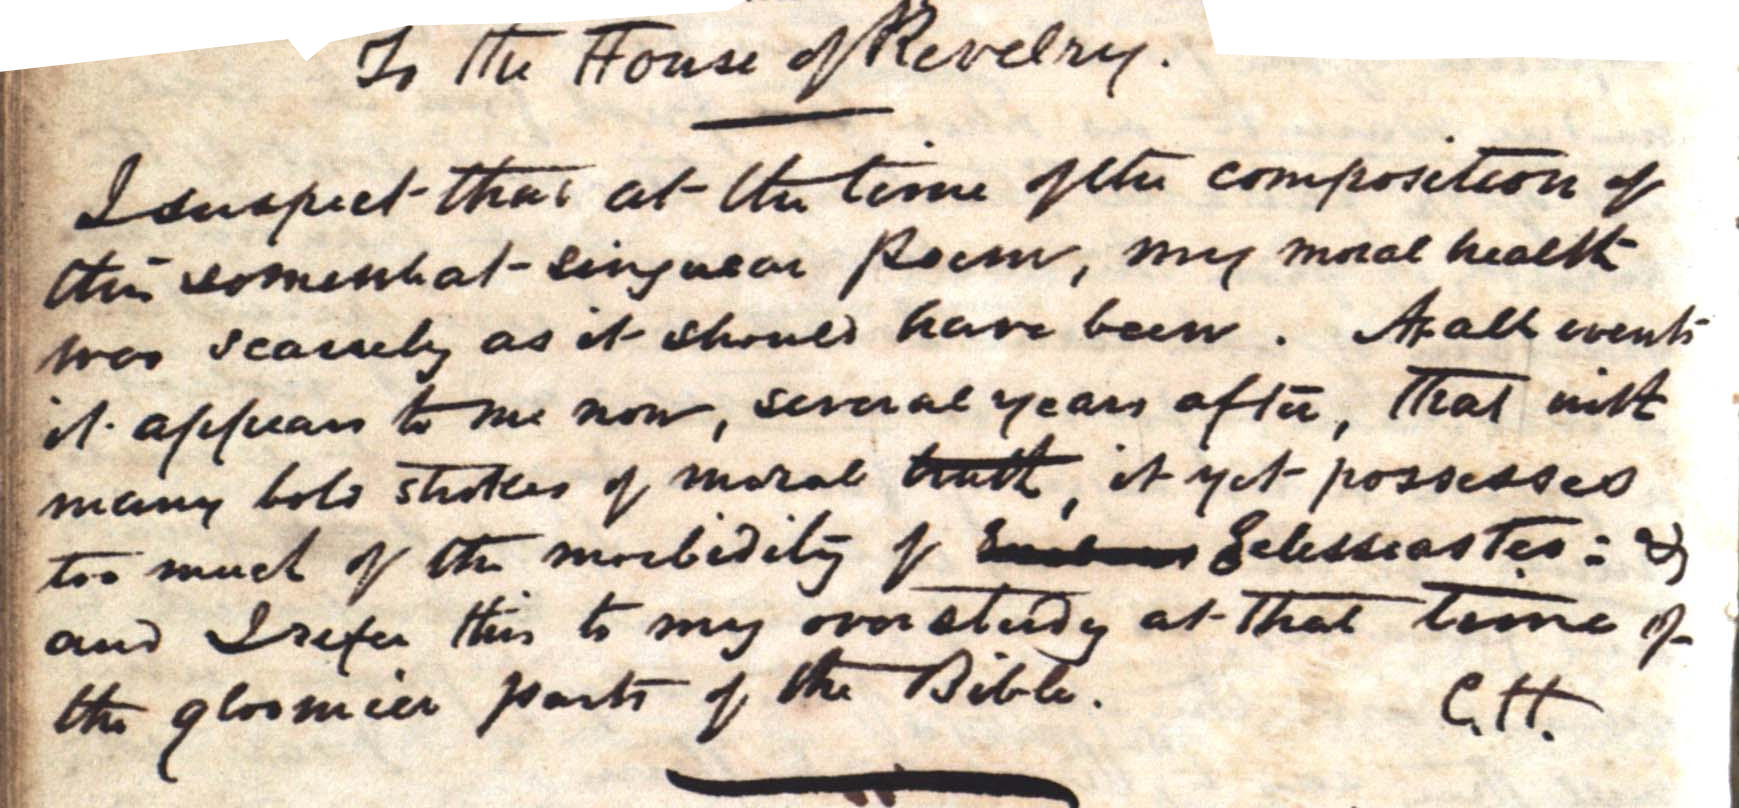 To the House of Revelry.
I suspect that at the time of the composition of
this somewhat singular Poem, my moral health
was scarcely as it should have been. At all events
it appears to me now, several years after, that with
many bold strokes of moral truth, it yet possesses
too much of the morbidity of Eclessiastes: &
and I refer this to my over study at that time of
the gloomier parts of the Bible.
C. H.